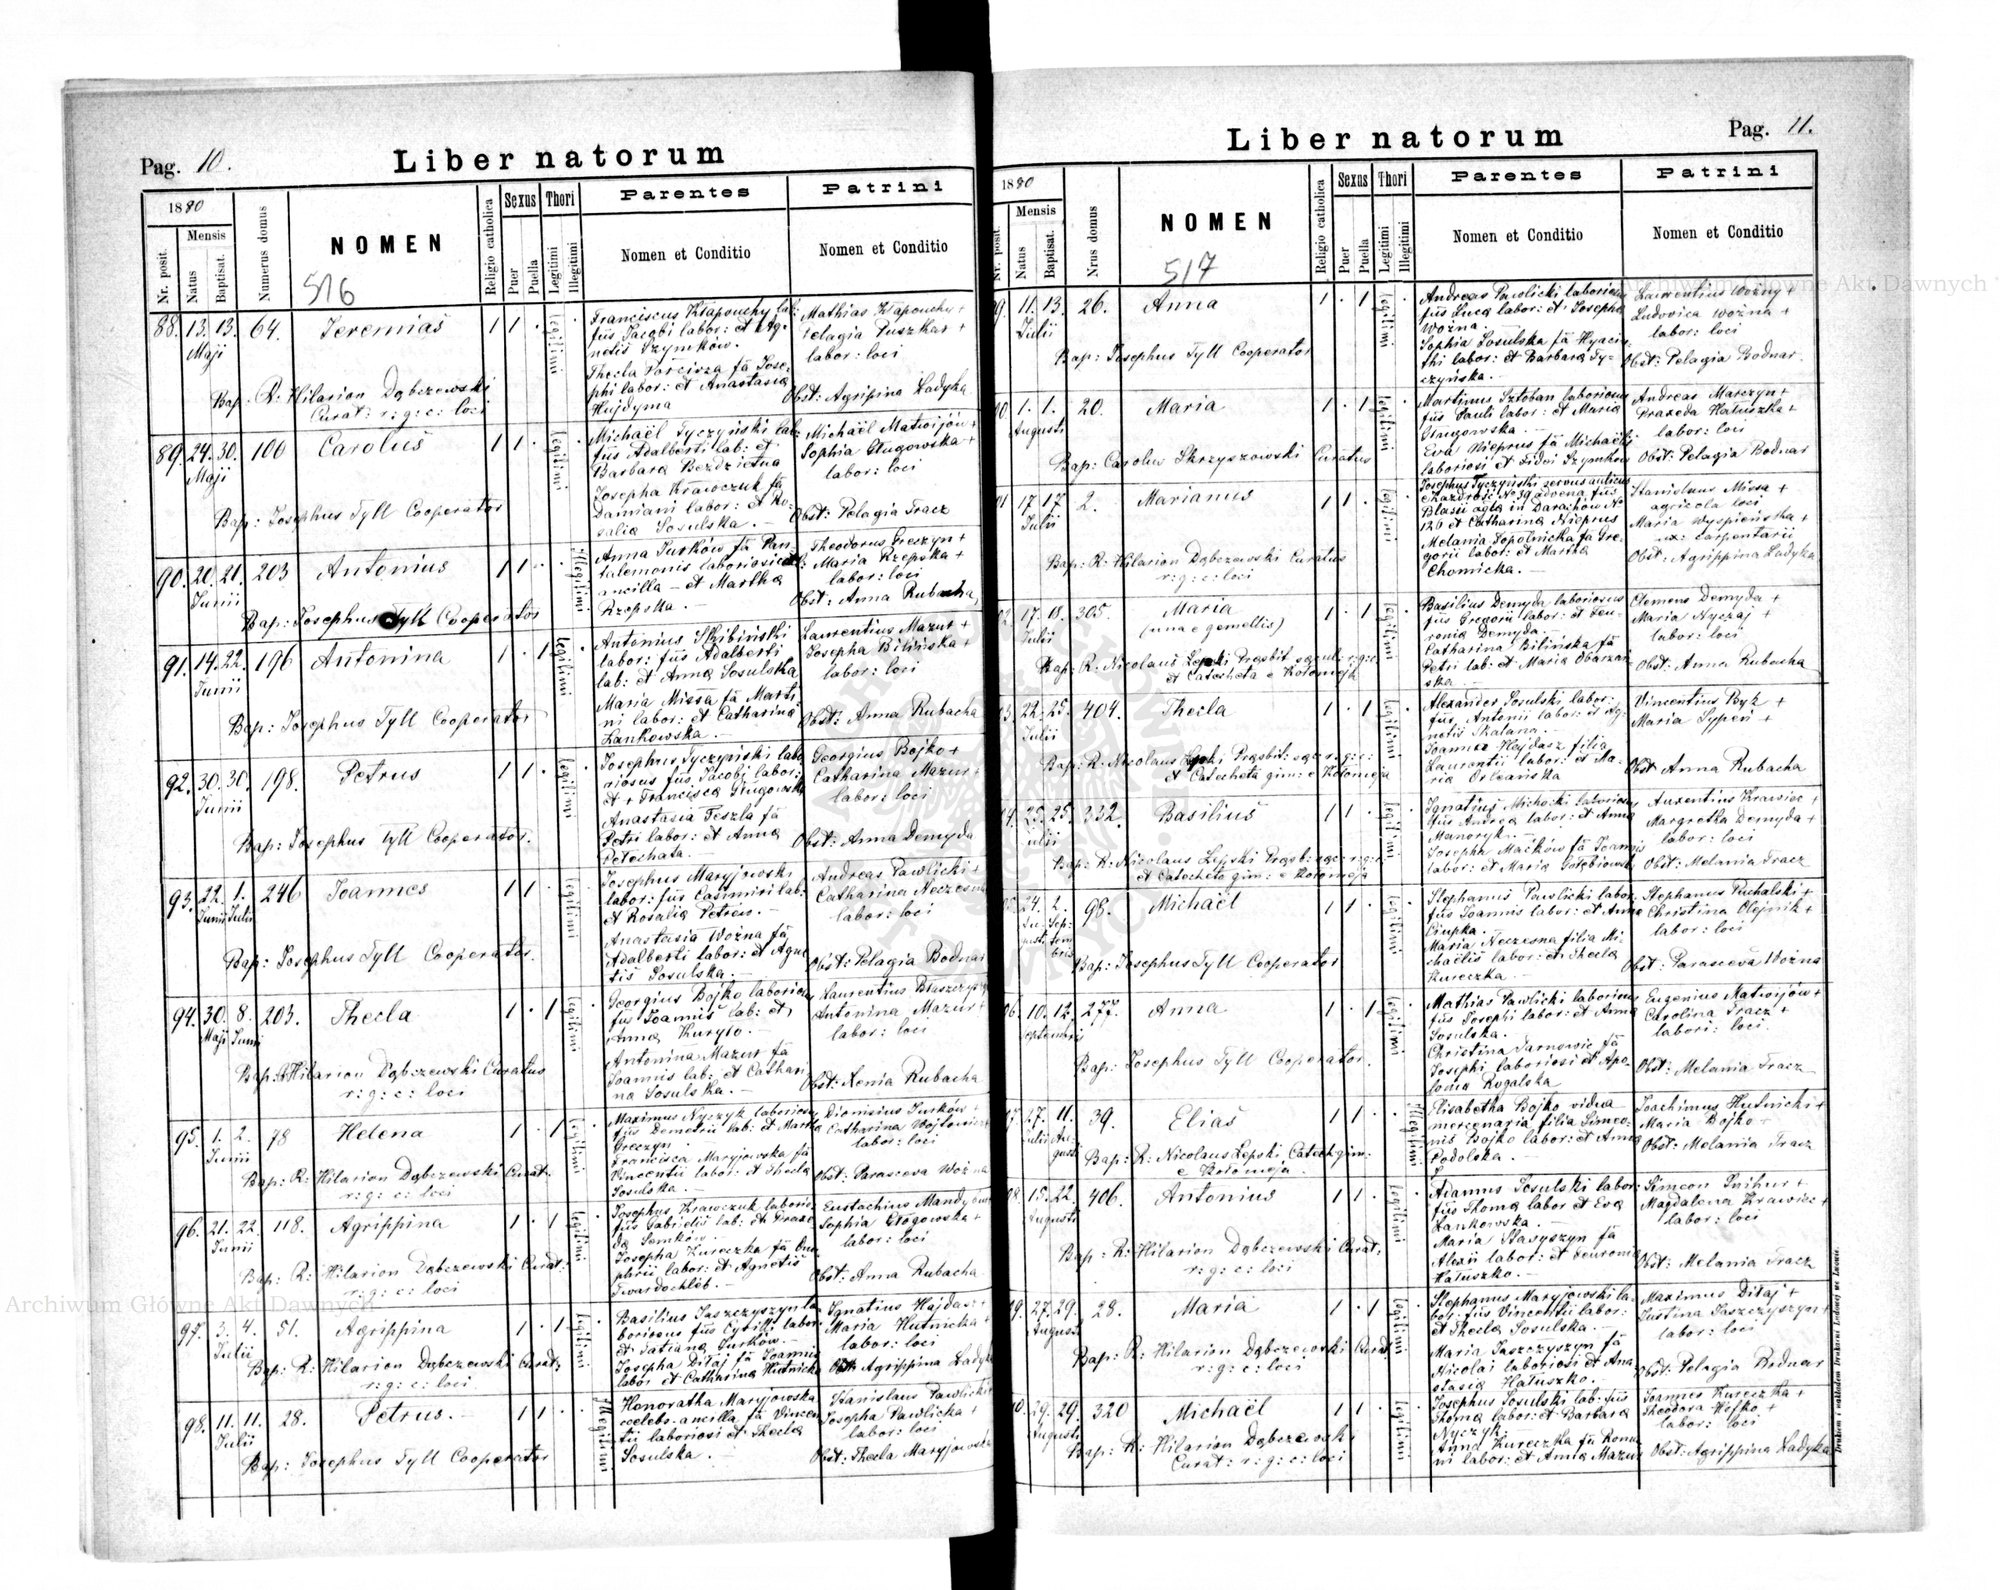 Pag. 10.
Liber natorum
1880
Nr. posit.
Mensis
Natus
Baptisat.
Numerus domus
NOMEN
516
Religio catholica
Sexus
Puer
Puella
Thori
Legitimi
Illegitimi
Parentes
Nomen et Conditio
Patrini
Nomen et Conditio
88. 13. 13. 64. Jeremias 1 1 .
Maji
legitimi
Franciscus Kłapouchy lab:
fius Jacobi labor: et Ag-
netis Szymków.
Thecla Porcisza fa Jose-
phi labor: et Anastasia
Hujdyma
Mathias Kłapouchy +
Pelagia Puszkar +
labor: loci
Obst: Agripina Ładyka
Bap: R: Hilarion Dąbczewski
Curat: r: g: c: loci
89. 24. 30. 100 Carolus 1 1 .
Maji
legitimi
Michaël Tyczyński lab:
fius Adalberti lab: et
Barbara Bezdzietna
Josepha Krawczuk fa
Damiani labor: et Ro-
salia Sosulska. —
Michaël Matwijów +
Sophia Gługowska +
labor: loci
Obst: Pelagia Tracz
Bap: Josephus Tyll Cooperator
90. 20. 21. 203 Antonius 1 1 .
Junii
Illegitimi
Anna Jurków fa Pan-
talemonis laboriosi
ancilla — et Martha
Rzepska. —
Theodorus Greszyn +
Maria Rzepska +
labor: loci
Obst: Anna Rubacha
Bap: Josephus Tyll Cooperator
91. 14. 22. 196 Antonina 1 . 1
Junii
legitimi
Antonius Skibiński
labor: fius Adalberti
lab: et Anna Sosulska
Maria Missa fa Marti-
ni labor: et Catharina
Łankowska. —
Laurentius Mazur +
Josepha Bilińska +
labor: loci
Obst: Anna Rubacha
Bap: Josephus Tyll Cooperator
92. 30. 30. 198. Petrus 1 1 .
Junii
legitimi
Josephus Tyczyński labo-
riosus fius Jacobi labor:
et + Francisca Gługowska
Anastasia Teszla fa
Petri labor: et Anna
Petechata. —
Georgius Bojko +
Catharina Mazur +
labor: loci
Obst: Anna Demyda
Bap: Josephus Tyll Cooperator.
93. 22. 1. 246 Joannes 1 1 .
Junii Julii
legitimi
Josephus Maryjowski
labor: fius Casimiri lab:
et Rosalia Petrów. —
Anastasia Woźna fa
Adalberti labor: et Agne-
tis Sosulska. —
Andreas Pawlicki +
Catharina Neczesna
labor: loci
Obst: Pelagia Bodnar
Bap: Josephus Tyll Cooperator.
94. 30. 8. 203. Thecla 1 . 1
Maji Junii
legitimi
Georgius Bojko laboriosus
fius Joannis lab: et
Anna Kuryło. —
Antonina Mazur fa
Joannis lab: et Cathari-
na Sosulska. —
Laurentius Błaszczyszyn
Antonina Mazur +
labor: loci
Obst: Xenia Rubacha
Bap: R: Hilarion Dąbczewski Curatus
r: g: c: loci
95. 1. 2. 78 Helena 1 . 1
Junii
legitimi
Maximus Nyczyk laboriosus
fius Demetrii lab: et Martha
Greczyn. —
Francisca Maryjowska fa
Vincentii labor: et Thecla
Sosulska. —
Dionisius Jurków +
Catharina Wojtowicz +
labor: loci
Obst: Parasceva Woźna
Bap: R: Hilarion Dąbczewski Curat:
r: g: c: loci
96. 21. 22. 118. Agrippina 1 . 1
Junii
legitimi
Josephus Krawczuk laborio-
fius Gabrielis lab: et Praxe-
da Semków.
Josepha Kureczka fa Onu-
phrii labor: et Agnetis
Twardochlib. —
Eustachius Mandyów
Sophia Głogowska +
labor: loci
Obst: Anna Rubacha
Bap: R: Hilarion Dąbczewski Curat:
r: g: c: loci
97. 3. 4. 51. Agrippina 1 . 1
Julii
legitimi
Basilius Jaszczyszyn la-
boriosus fius Cyrilli labor:
et Tatiana Jurków. —
Josepha Diłaj fa Joannis
labor et Catharina Hutnicka
Ignatius Hajdasz +
Maria Hutnicka +
labor: loci
Obst: Agrippina Ładyka
Bap: R: Hilarion Dąbczewski Curat:
r: g: c: loci
98. 11. 11. 28. Petrus. — 1 1 .
Julii
Illegitimi
Honoratha Maryjowska
coelebs ancilla fa Vincen-
tii laboriosi et Thecla
Sosulska. —
Stanislaus Pawlicki
Josepha Pawlicka +
labor: loci
Obst: Thecla Maryjowska
Bap: Josephus Tyll Cooperator
Pag. 11.
Liber natorum
1880
Nr. posit.
Mensis
Natus
Baptisat.
Nrus domus
NOMEN
517
Religio catholica
Sexus
Puer
Puella
Thori
Legitimi
Illegitimi
Parentes
Nomen et Conditio
Patrini
Nomen et Conditio
99. 11. 13. 26. Anna 1 . 1
Julii
legitimi
Andreas Pawlicki laboriosus
fius Luca labor: et Josepha
Woźna.
Sophia Sosulska fa Hyacin-
thi labor: et Barbara Ty-
czyńska. —
Laurentius Woźny +
Ludovica Woźna +
labor: loci
Obst: Pelagia Bodnar.
Bap: Josephus Tyll Cooperator
1. 1. 20. Maria 1 . 1
Augusti
legitimi
Martinus Sztoban laboriosus
fius Pauli labor: et Maria
Gługowska. —
Eva Nieprus fa Michaëlis
laboriosi et Sidoi Szymków
Andreas Marczyn +
Praxeda Hałuszka +
labor: loci
Obst: Pelagia Bodnar
Bap: Carolus Skrzyszowski Curatus
17 17 2. Marianus 1 1 .
Julii
legitimi
Josephus Tyczyński servus aulicus
Blasii in Darachów No
126 et Catharina Nieprus
Melania Sopolnicka fa Gre-
gorii labor: et Martha
Chomicka. —
Stanislaus Missa +
agricola loci
Maria Wyspieńska +
ux: carpentarii
Obst: Agrippina Ładyka
Bap: R: Hilarion Dąbczewski Curatus
r: g: c: loci
17. 18. 305. Maria 1 . 1
(una e gemellis)
Julii
legitimi
Basilius Demyda laboriosus
fius Gregorii labor: et Eu-
ronia Demyda. —
Catharina Bilińska fa
Petri lab: et Maria Obarzań-
ska. —
Clemens Demyda +
Maria Nyczaj +
labor: loci
Obst: Anna Rubacha
Bap: R. Nicolaus Łepki Presbit
et Catecheta e Kołomyja
22. 25. 404. Thecla 1 . 1
Julii
legitimi
Alexander Sosulski labor:
fius Antonii labor: et Ag-
netis Skalana. —
Joanna Hejdasz filia
Laurentii labor: et Ma-
ria Orleańska
Vincentius Byk +
Maria Sypeń +
Obst Anna Rubacha
Bap: R: Nicolaus Łepki Presbit:
et Catecheta gim: e Kołomeja
25. 25. 332. Basilius 1 1 .
Julii
legitimi
Ignatius Michocki laboriosus
fius Andrea labor: et Anna
Manoryk. —
Josepha Maćków fa Joannis
labor: et Maria Gołębiowska
Auxentius Krawiec +
Margretha Demyda +
labor: loci
Obst: Melania Tracz
Bap: R: Nicolaus Lepski Presb:
et Catecheta gim: e Kołomeja
24. 2. 98. Michaël 1 1 .
Augusti Septembris
legitimi
Stephanus Pawlicki labor.
fius Joannis labor: et Anna
Ciupka.
Maria Neczesna filia Mi-
chaëlis labor: et Thecla
Kureczka. —
Stephanus Puchalski +
Christina Olejnik +
labor: loci
Obst: Parasceva Woźna
Bap: Josephus Tyll Cooperator
10. 12. 277. Anna 1 . 1
Septembris
legitimi
Mathias Pawlicki laboriosus
fius Josephi labor: et Anna
Sosulska.
Christina Tarnowic fa
Josephi laboriosi et Apo-
lonia Rogalska
Eugenius Matwijów +
Carolina Tracz +
labori: loci.
Obst: Melania Tracz
Bap: Josephus Tyll Cooperator.
27. 11. 39. Elias 1 1 .
Julii Augusti
Illegitimi
Elisabetha Bojko vidua
mercenaria filia Simeo-
nis Bojko labor: et Anna
Podolska. —
Joachimus Hutnicki +
Maria Bojko +
Obst: Melania Tracz
Bap: R: Nicolaus Lepski Catech gim:
e Kołomeja.
15. 22. 406. Antonius 1 1 .
Augusti
legitimi
Adamus Sosulski labor:
fius Thoma labor et Eva
Łankowska. —
Maria Stasyszyn fa
Alexii labor: et Feuronia
Hałuszko. —
Simeon Snihur +
Magdalena Krawiec +
labor: loci
Obst: Melania Tracz
Bap: R: Hilarion Dąbczewski Curat:
r: g: c: loci
27. 29. 28. Maria 1 . 1
Augusti
legitimi
Stephanus Maryjowski la-
bor: fius Vincentii labor:
et Thecla Sosulska. —
Maria Jaszczyszyn fa
Nicolai laboriosi et Ana-
stasia Hałuszko. —
Maximus Diłaj +
Justina Jaszczyszyn +
labor: loci
Obst: Pelagia Bodnar
Bap: R: Hilarion Dąbczewski Curat
r: g: c: loci
29. 29. 320 Michaël 1 1 .
Augusti
legitimi
Josephus Sosulski lab: fius
Thoma labor: et Barbara
Nyczyk —
Anna Kureczka fa Roma-
ni labor: et Anna Mazur
Joannes Kureczka +
Theodora Hejko +
labor: loci
Obst: Agrippina Ładyka
Bap: R: Hilarion Dąbczewski
Curat: r: g: c: loci
Drukiem i nakładem Drukarni Ludowej we Lwowie.
Archiwum Główne Akt Dawnych
Archiwum Główne Akt Dawnych